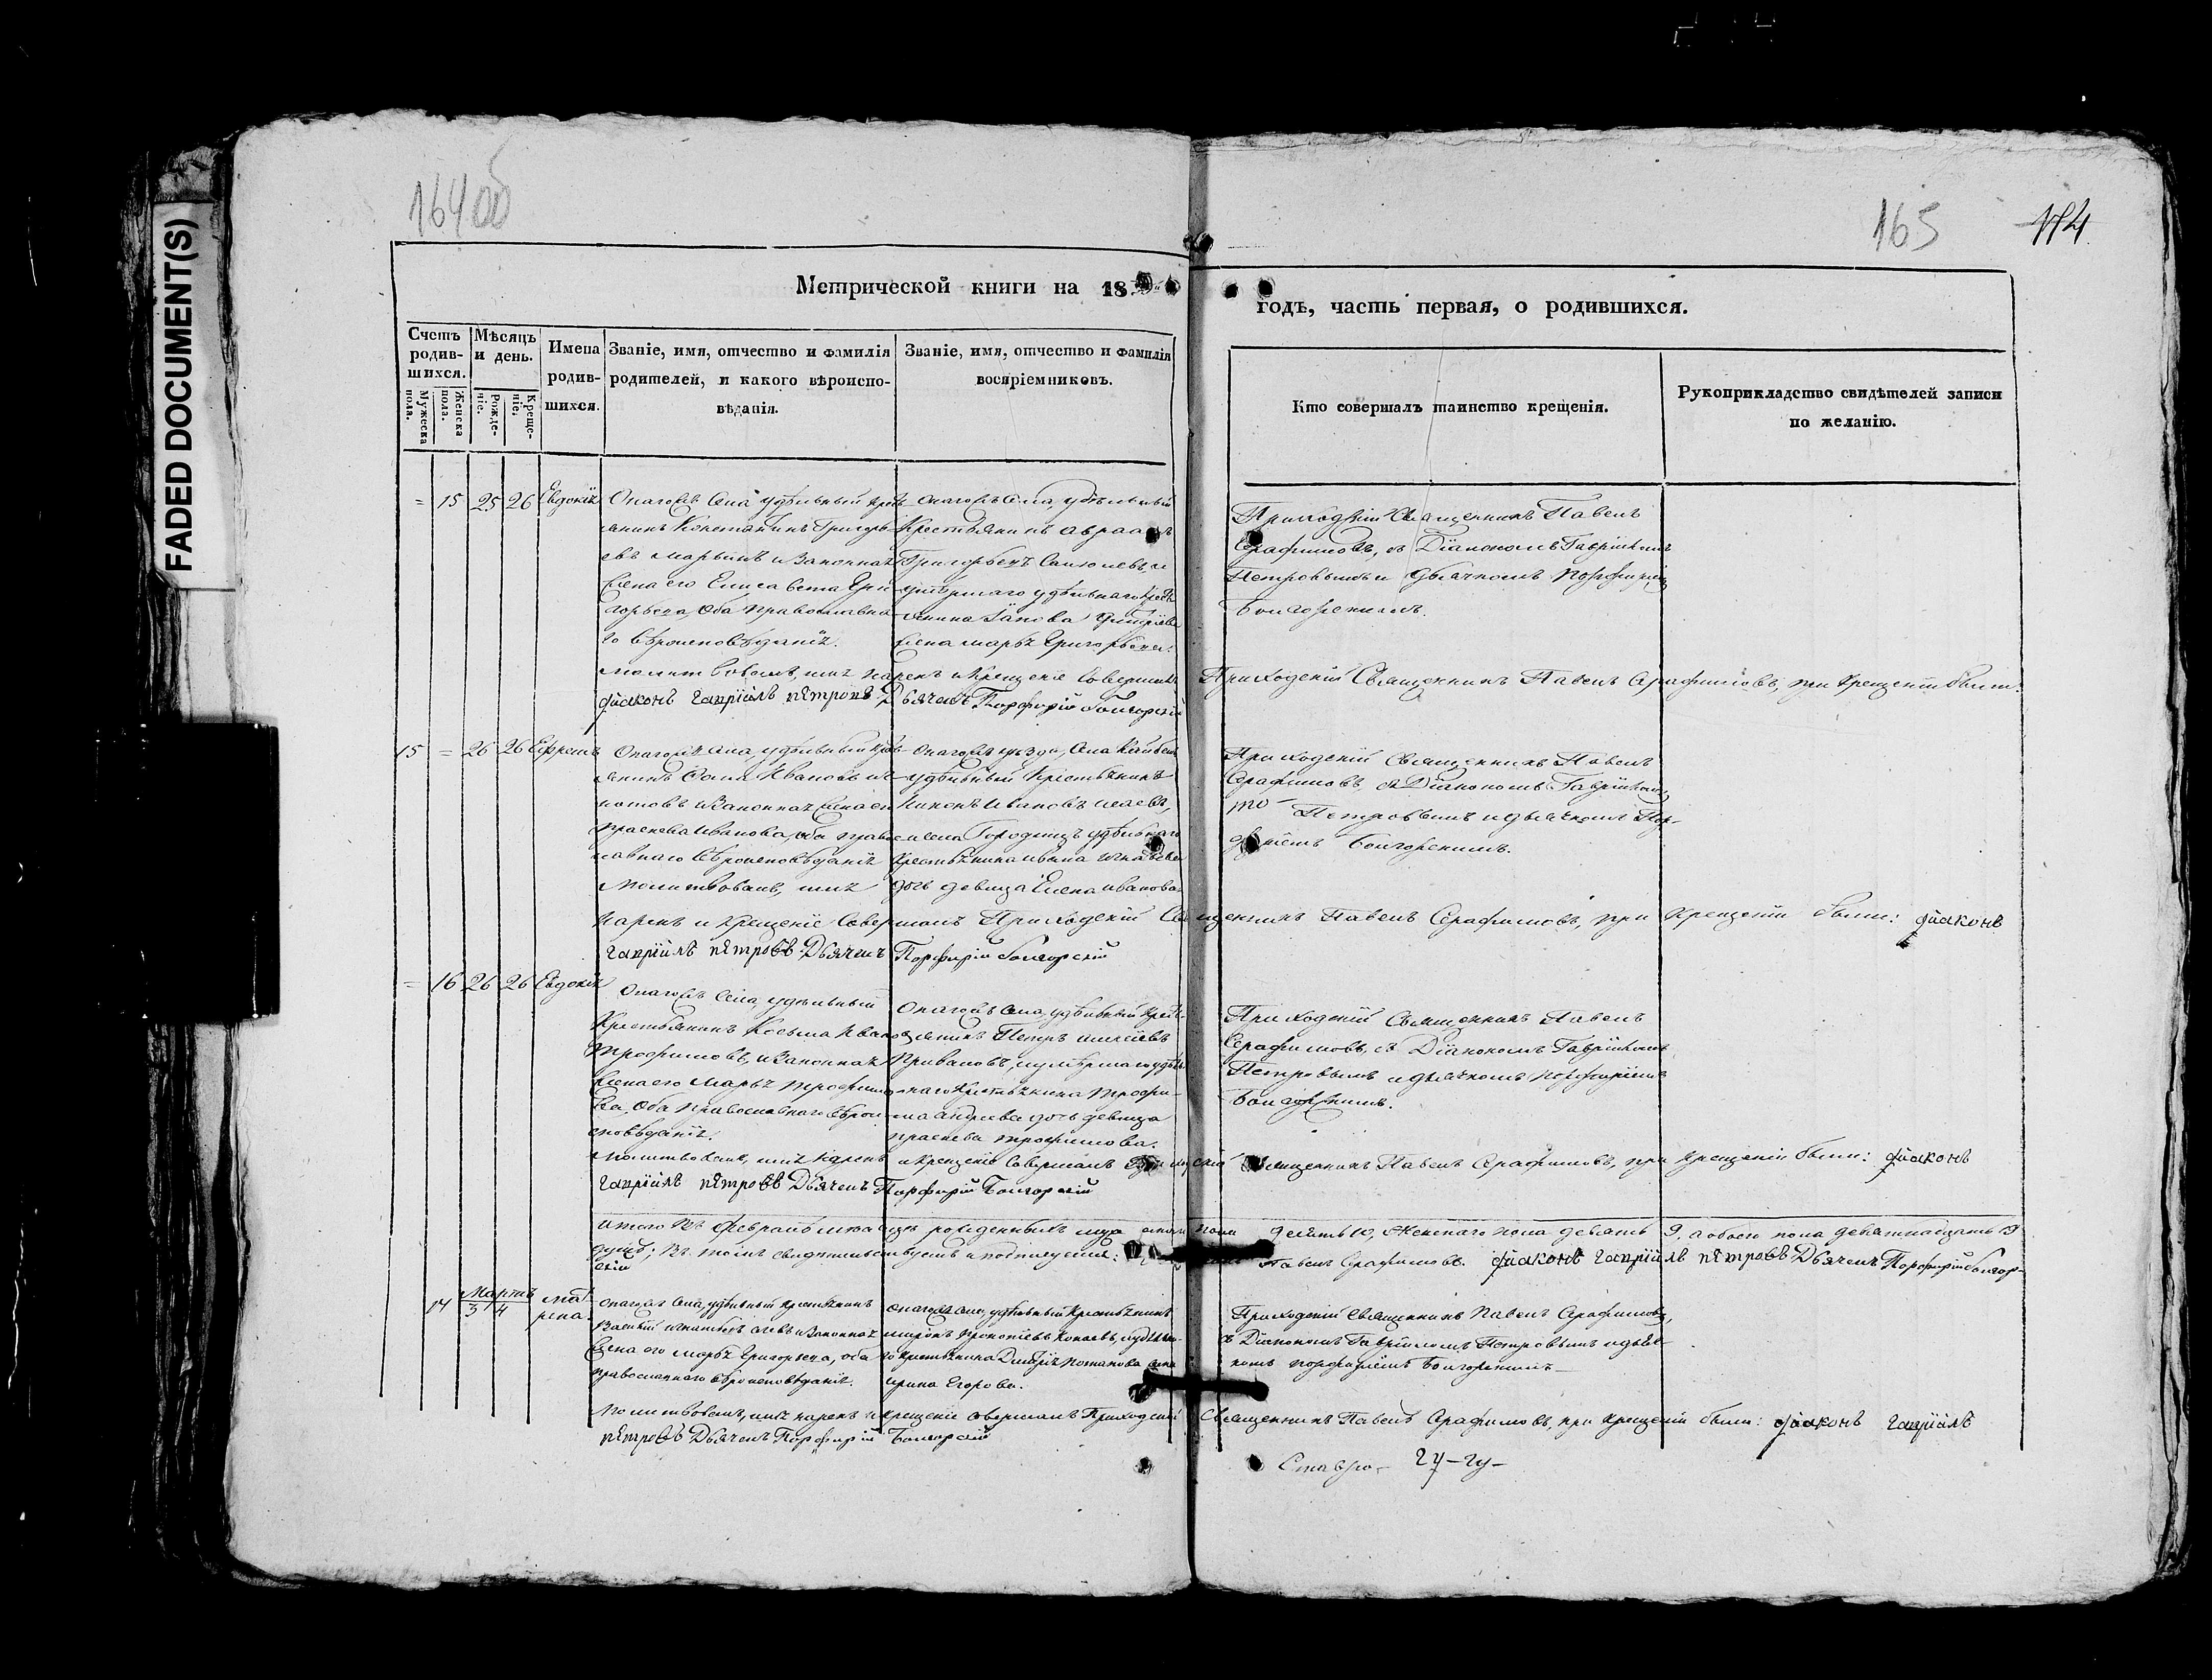 FADED DOCUMENT(S)
164об
165
174
Метрической книги на 18
годъ, часть первая, о родившихся.
Счетъ родив-шихся.
Мужеска пола.
Женска пола.
Мѣсяцъ и день.
Рожде-ніе.
Креще-ніе.
Имена родив-шихся.
Званіе, имя, отчество и фамилія родителей, и какого вѣроиспо-вѣданія.
Званіе, имя, отчество и фамилія воспріемниковъ.
Кто совершалъ таинство крещенія.
Рукоприкладство свидѣтелей записи по желанію.
= 15 25 26 Евдокія
Онагожъ села удѣльный крест-
янинъ Константинъ Григорь-
евъ Марьинъ и законная
жена его Елисавета Гри-
горьева, оба православна-
го вѣроисповѣданія.
онагожъ села, удѣльный
крестьянинъ Авраамъ
Григорьевъ
умершаго удѣльнаго крест-
янина
жена Марья Григорьева.
Приходскій Священникъ Павелъ
Серафимовъ, съ Діакономъ Гавріиломъ
Петровымъ и дьячкомъ Порфиріемъ
Болгорскимъ.
Молитвовалъ, имя нарекъ и крещеніе совершалъ Приходскій Священникъ Павелъ Серафимовъ, при крещеніи были:
діаконъ гавріилъ пѣтровъ Дьячекъ Порфирій Болгорскій
15 = 26 26 Ефремъ
Онагожъ села, удѣльный крест-
янинъ Ѳома Ивановъ
и законная жена его
Праскева Иванова, оба право-
славнаго вѣроисповѣданія
онагожъ уѣзда, села
удѣльный крестьянинъ
Никонъ Ивановъ Исаевъ,
и села Городищъ удѣльнаго
крестьянина
дочь девица Елена Иванова.
Приходскій Священникъ Павелъ
Серафимовъ съ Діакономъ Гавріиломъ
Петровымъ и дьячкомъ Пор-
фиріемъ Болгорскимъ.
Молитвовалъ, имя
нарекъ и крещеніе совершалъ Приходскій Священникъ Павелъ Серафимовъ, при крещеніи были: діаконъ
гавріилъ пѣтровъ Дьячекъ Порфирій Болгорскій
= 16 26 26 Евдокія
Онагожъ села, удѣльный
крестьянинъ Косьма Ивановъ
Трофимовъ, и законная
жена его Марья Трофимо-
ва, оба православнаго вѣрои-
сповѣданія.
Онагожъ села, удѣльный крест-
янинъ Петръ Алексѣевъ
Приваловъ, и умершаго удѣль-
наго крестьянина Трофи-
ма Андреева дочь девица
Праскева Трофимова.
Приходскій Священникъ Павелъ
Серафимовъ, съ Діакономъ Гавріиломъ
Петровымъ и дьячкомъ Порфиріемъ
Болгорскимъ.
Молитвовалъ, имя нарекъ и крещеніе совершалъ Приходскій Священникъ Павелъ Серафимовъ, при крещеніи были: діаконъ
гавріилъ пѣтровъ Дьячекъ Порфирій Болгорскій
Итого въ февралѣ мѣсяцѣ рожденныхъ пола десять 10, женскаго пола девять 9, а обоего пола девятнадцать 19
душъ; въ томъ свидѣтельствуемъ и подписуемся: Павелъ Серафимовъ. діаконъ гавріилъ пѣтровъ Дьячекъ Порфирій Болгор-
скій
Мартъ
3 4
Мат-
рена.
онагожъ села, удѣльный крестьянинъ
Василій и законная
жена его Марья Григорьева, оба
православнаго вѣроисповѣданія.
онагожъ села, удѣльный крестьянинъ
Прокопіевъ и удѣльна-
го крестьянина Дмитрія Потапова жена
Ирина Егорова.
Приходскій Священникъ Павелъ Серафимовъ,
съ Діакономъ Гавріиломъ Петровымъ и дьяч-
комъ Порфиріемъ Болгорскимъ
Молитвовалъ, имя нарекъ и крещеніе совершалъ Приходскій Священникъ Павелъ Серафимовъ, при крещеніи были: діаконъ гавріилъ
пѣтровъ Дьячекъ Порфирій Болгорскій